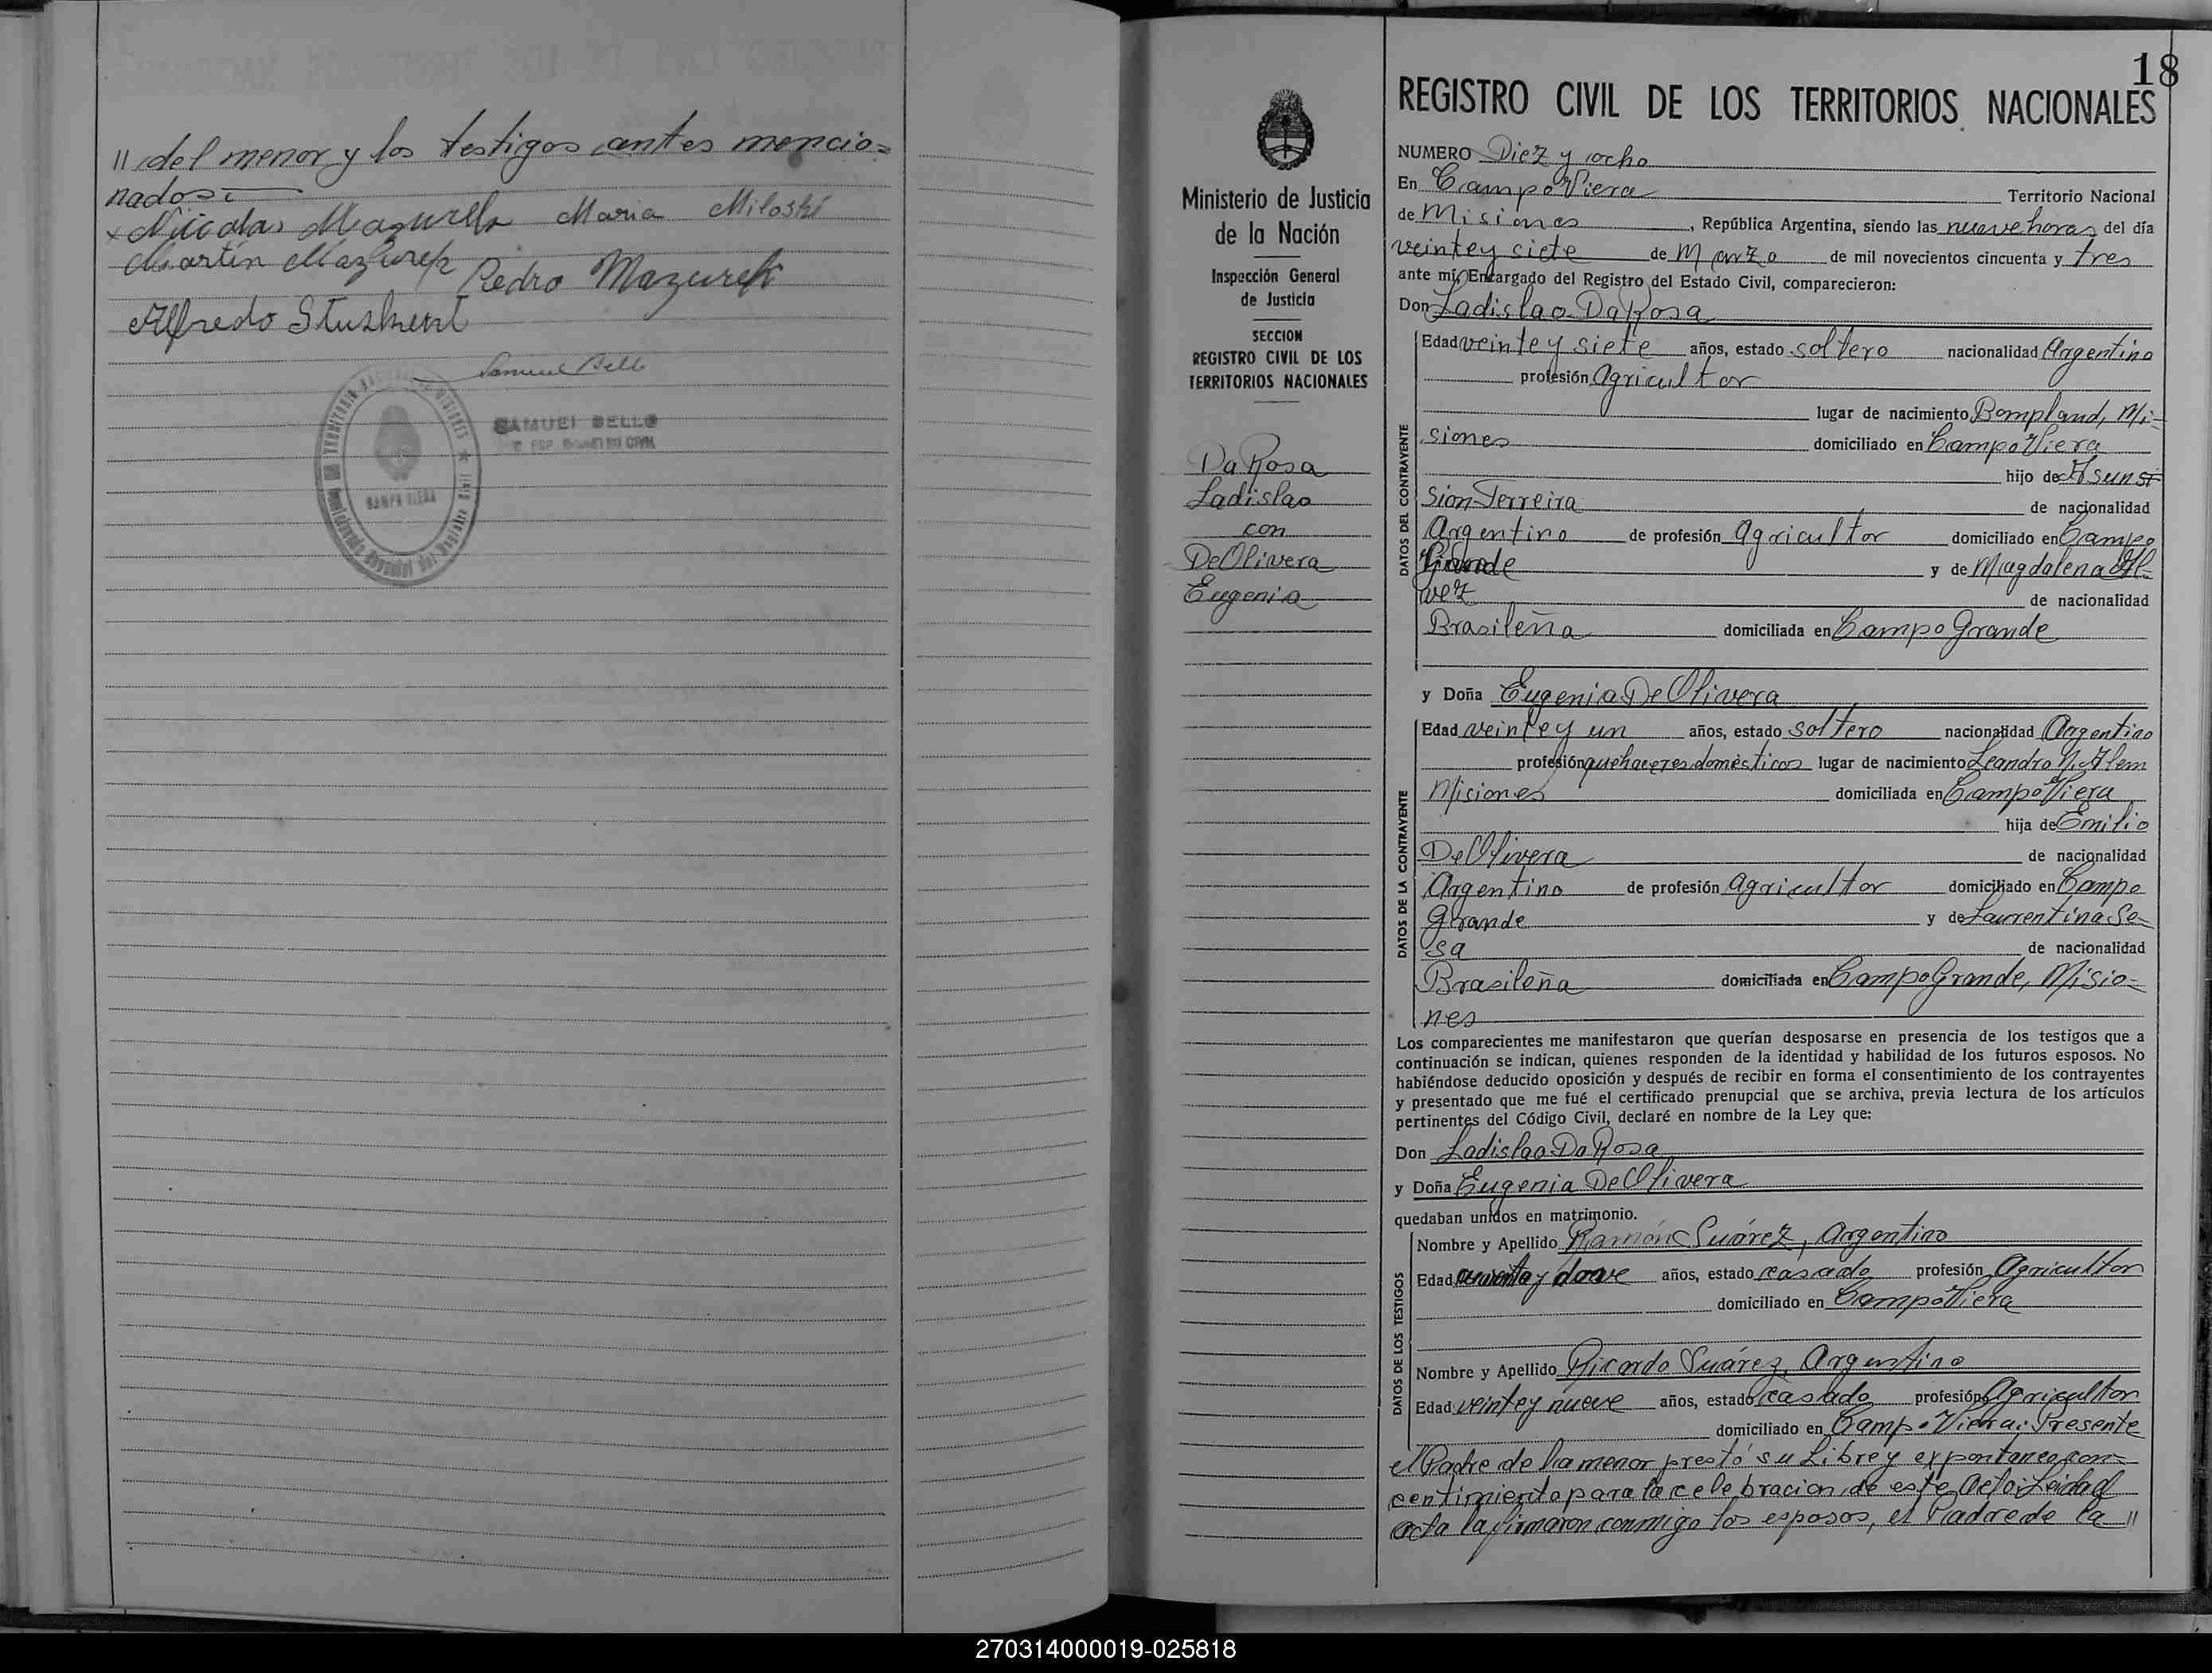 " del menor y los testigos antes mencio=
nados:
x Nicolas Mazurek Maria Miloski
Martín Mazurek Pedro Mazurek
Alfredo
Samuel Bello
SAMUEL BELLO
CAMPO VIERA
18
REGISTRO CIVIL DE LOS TERRITORIOS NACIONALES
Ministerio de Justicia
de la Nación
Inspección General
de Justicia
SECCION
REGISTRO CIVIL DE LOS
TERRITORIOS NACIONALES
Da Rosa
Ladislao
con
De Olivera
Eugenia
NUMERO Diez y ocho
En Campo Viera Territorio Nacional
de Misiones, República Argentina, siendo las nueve horas del día
veinte y siete de Marzo de mil novecientos cincuenta y tres
ante mí, Encargado del Registro del Estado Civil, comparecieron:
Don Ladislao Da Rosa
DATOS DEL CONTRAYENTE
Edad veinte y siete años, estado soltero nacionalidad Argentino
profesión Agricultor
lugar de nacimiento Bompland, Mi=
siones domiciliado en Campo Viera
hijo de Asun
sion Ferreira de nacionalidad
Argentino de profesión Agricultor domiciliado en Campo
Grande y de Magdalena Al-
vez de nacionalidad
Brasileña domiciliada en Campo Grande
y Doña Eugenia De Olivera
DATOS DE LA CONTRAYENTE
Edad veinte y un años, estado soltero nacionalidad Argentino
profesión quehaceres domésticos lugar de nacimiento Leandro N. Alem
Misiones domiciliada en Campo Viera
hija de Emilio
De Olivera de nacionalidad
Argentino de profesión Agricultor domiciliado en Campo
Grande y de Laurentina So-
sa de nacionalidad
Brasileña domiciliada en Campo Grande, Misio-
nes
Los comparecientes me manifestaron que querían desposarse en presencia de los testigos que a
continuación se indican, quienes responden de la identidad y habilidad de los futuros esposos. No
habiéndose deducido oposición y después de recibir en forma el consentimiento de los contrayentes
y presentado que me fué el certificado prenupcial que se archiva, previa lectura de los artículos
pertinentes del Código Civil, declaré en nombre de la Ley que:
Don Ladislao Da Rosa
y Doña Eugenia De Olivera
quedaban unidos en matrimonio.
DATOS DE LOS TESTIGOS
Nombre y Apellido Ramón Suárez, Argentino
Edad años, estado casado profesión Agricultor
domiciliado en Campo Viera
Nombre y Apellido Ricardo Suárez, Argentino
Edad veinte y nueve años, estado casado profesión Agricultor
domiciliado en Campo Viera: Presente
el Padre de la menor prestó su Libre y expontaneo con-
centimiento para la celebracion de este Acto: Leida el
acta la firmaron conmigo los esposos, el Padre de la "
270314000019-025818